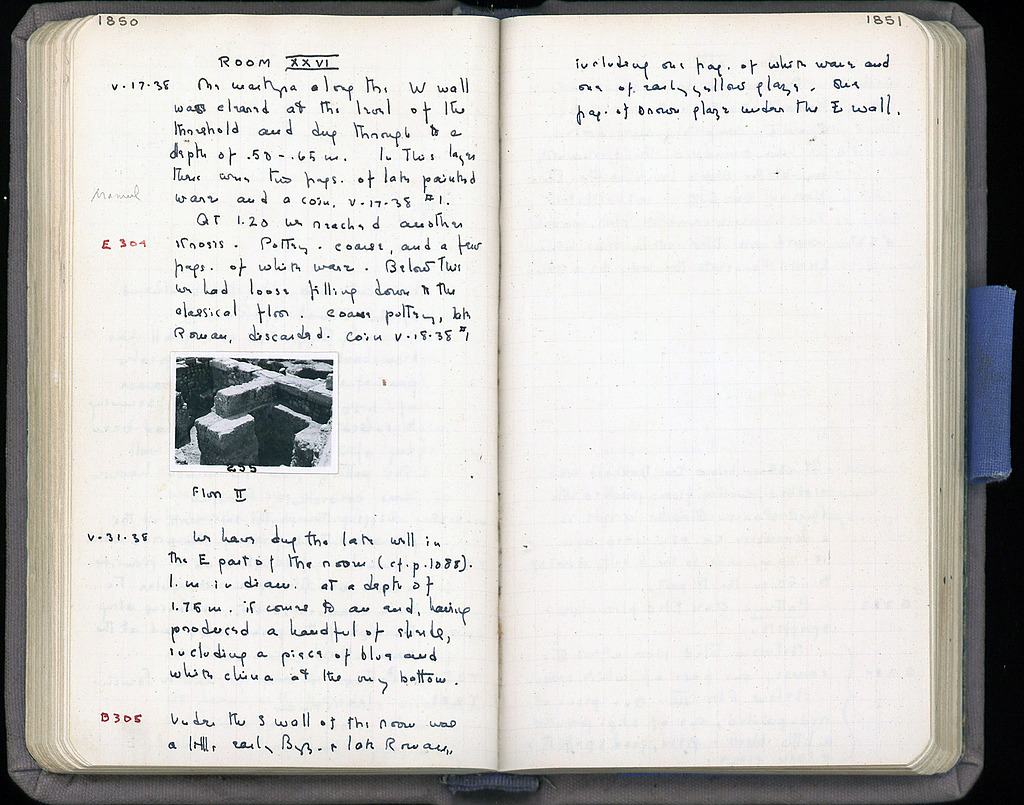 1850
ROOM XXVI
V-17-38 The martyra along the W wall
was cleared at the level of the
threshold and dug through to a
depth of .50-.65 m. In this layer
there were two frags. of late painted
ware and a coin, V-17-38 #1.
At 1.20 we reached another
E 304 strosis. Pottery. coarse, and a few
frags. of white ware. Below this
we had loose filling down to the
classical floor. Coarse pottery, late
Roman, discarded. Coin V-18-38 #1
255
Floor II
V-31-38 We have dug the late well in
the E part of the room (cf. p. 1088).
1. m in diam. at a depth of
1.75 m. it comes to an end, having
produced a handful of sherds,
including a piece of blue and
white china at the very bottom.
B 305 Under the S wall of this room was
a little early Byz. + late Roman,
1851
including one frag. of white ware and
one of early yellow glaze. One
frag. of brown glaze under the E wall.